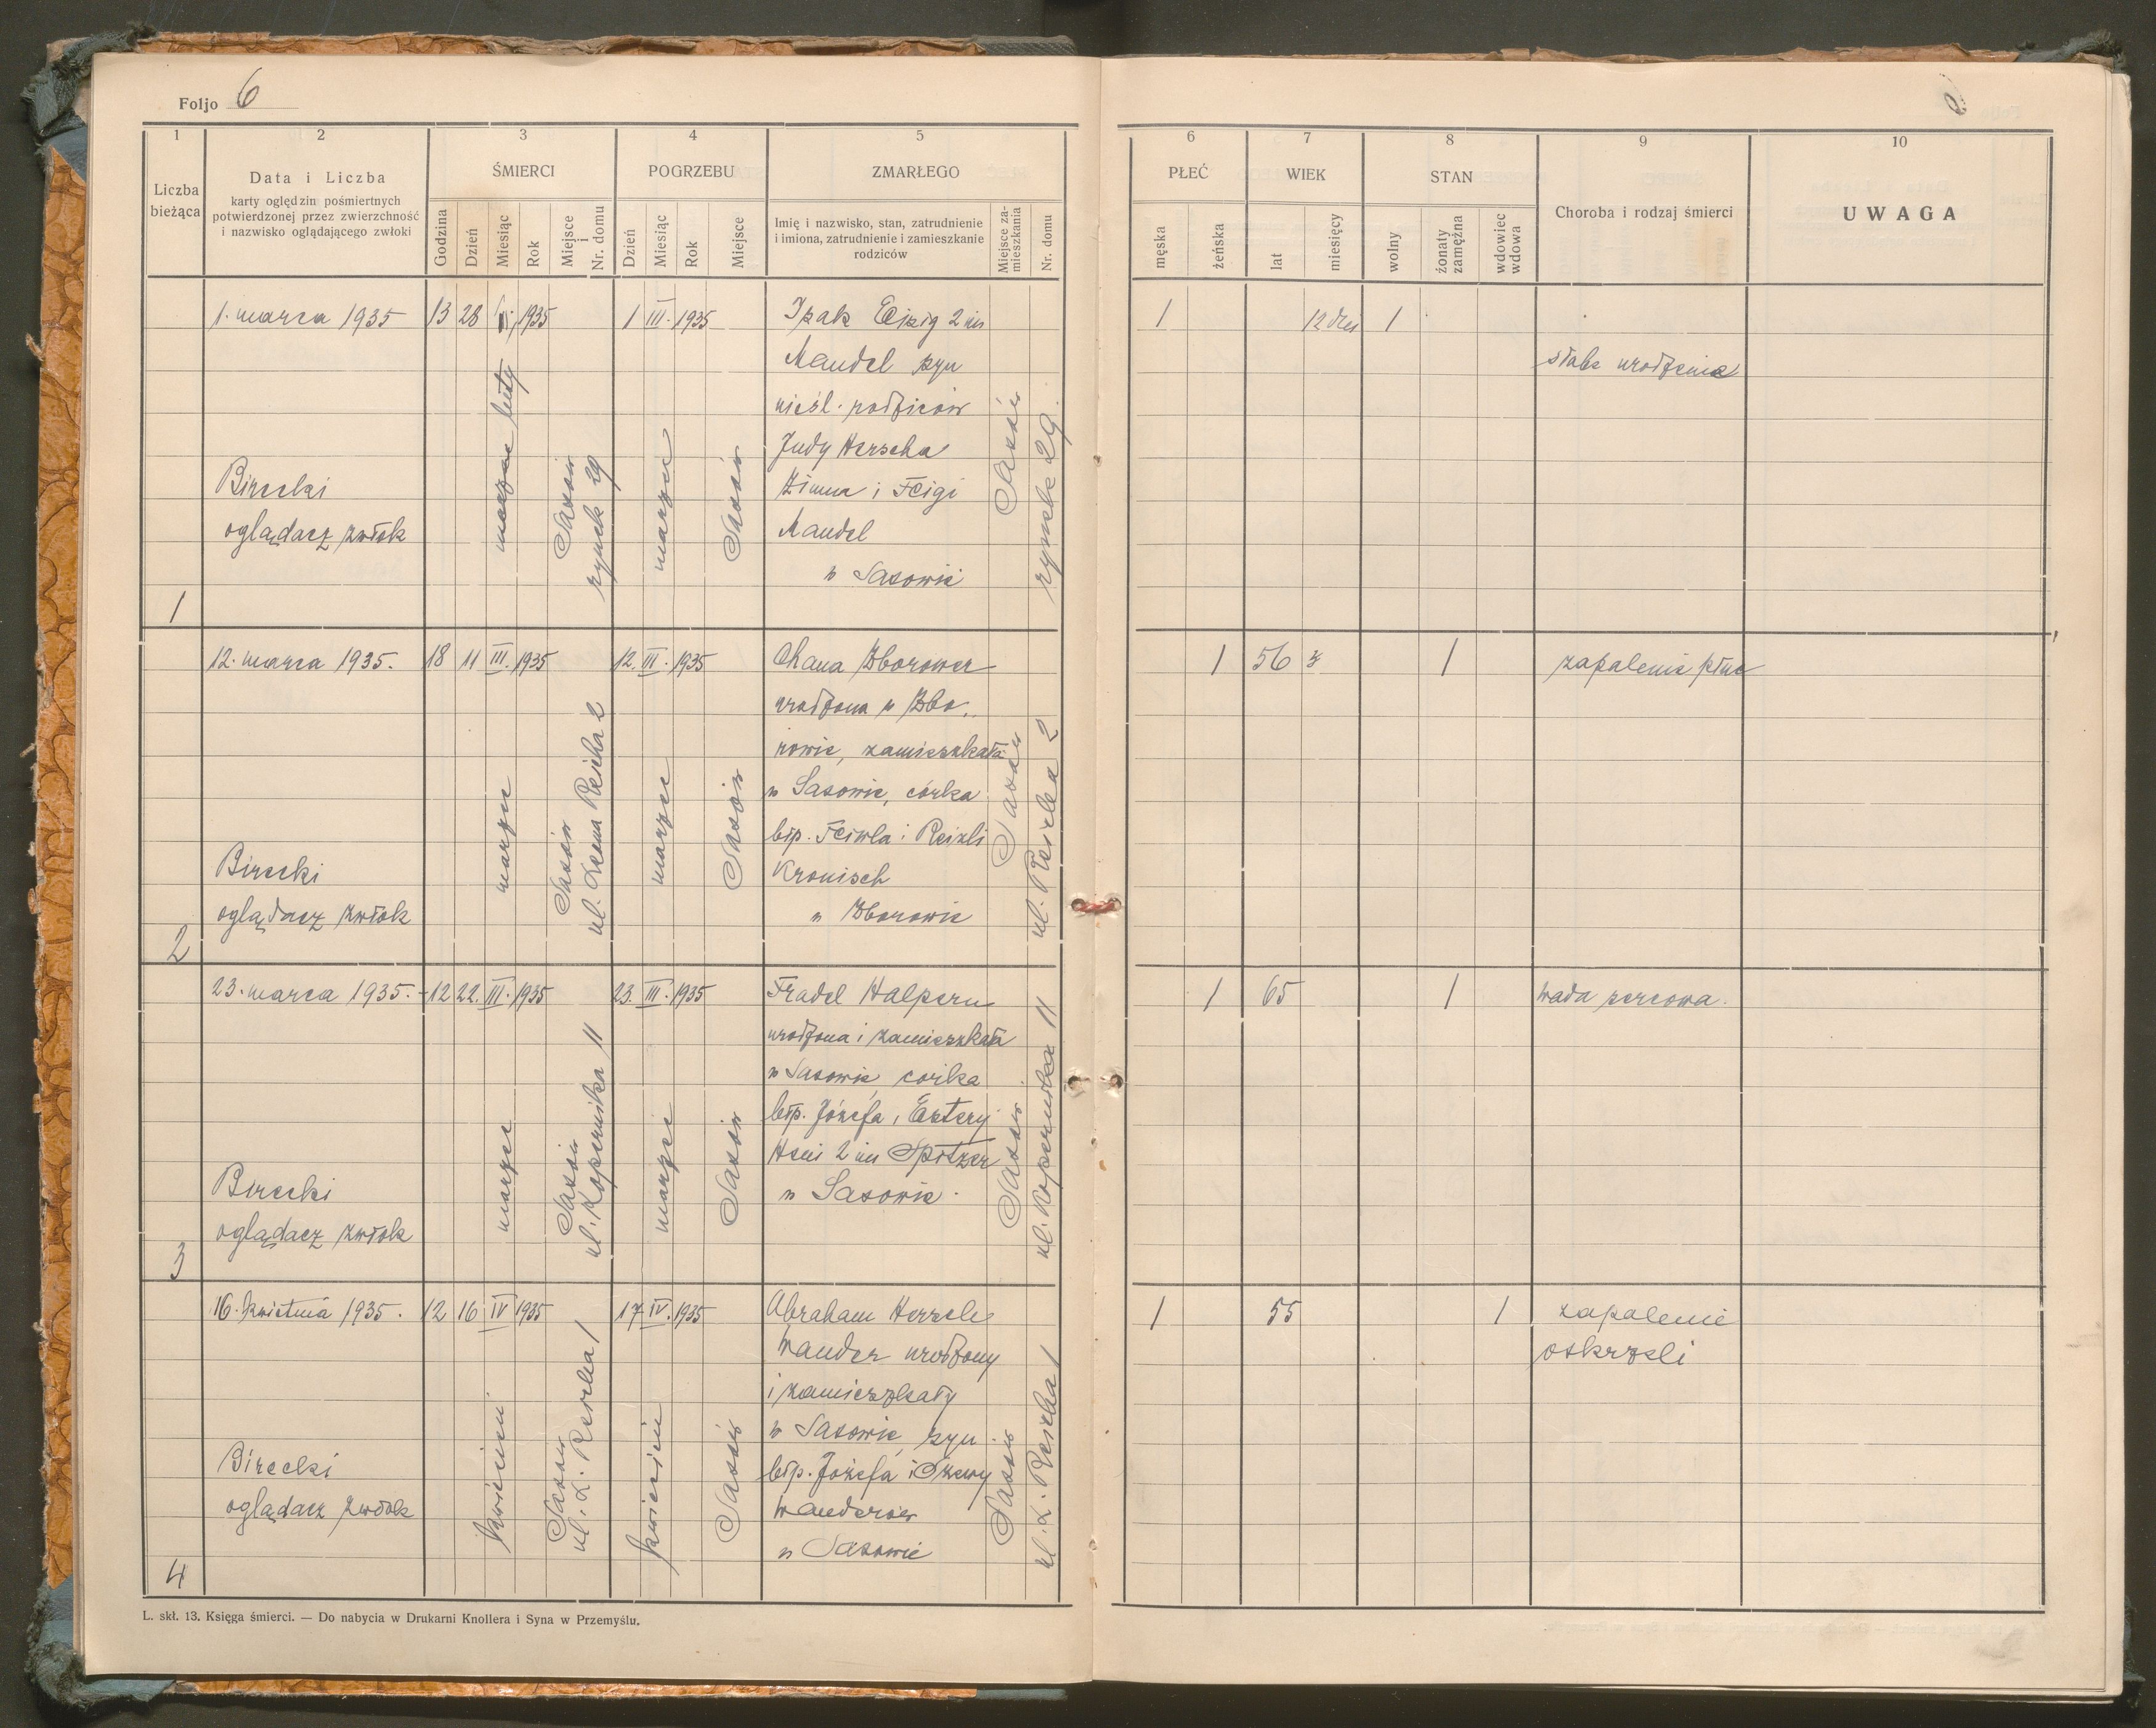 Foljo 6
1 2 3 4 5
Liczba bieżąca
Data i Liczba
karty oględzin pośmiertnych
potwierdzonej przez zwierzchność
i nazwisko oglądającego zwłoki
ŚMIERCI
Godzina
Dzień
Miesiąc
Rok
Miejsce i Nr. domu
POGRZEBU
Dzień
Miesiąc
Rok
Miejsce
ZMARŁEGO
Imię i nazwisko, stan, zatrudnienie
i imiona, zatrudnienie i zamieszkanie
rodziców
Miejsce zamieszkania
Nr. domu
6 7 8 9 10
PŁEĆ
męska
żeńska
WIEK
lat
miesięcy
STAN
wolny
żonaty zamężna
wdowiec wdowa
Choroba i rodzaj śmierci
UWAGA
1
1. marca 1935
Birecki
oglądacz zwłok
13 28 1935
marzec luty
Sasów
rynek 29
1 III. 1935
marzec
Sasów
Izak Eizig 2 im
Mandel syn
nieśl. rodziców
Judy Herscha
Zimna i Feigi
Mandel
w Sasowie
Sasów
rynek 29.
1
12 dni
1
słabe urodzenie
2
12. marca 1935.
Birecki
oglądacz zwłok
18 11 III. 1935
marzec
Sasów
ul. Leona Reicha 2
12. III. 1935
marzec
Sasów
Chana Zborower
urodzona w Zbo-
rowie, zamieszkała
w Sasowie, córka
błp. Feiwla i Reizli
Kronisch
w Zborowie
Sasów
ul. Reicha 2
1
56
1
zapalenie płuc
3
23. marca 1935.
Birecki
oglądacz zwłok
12 22. III. 1935
marzec
Sasów
ul. Kopernika 11
23. III. 1935
marzec
Sasów
Fradel Halpern
urodzona i zamieszkała
w Sasowie córka
błp. Józefa i Estery
Heni 2 im Spitzer
w Sasowie.
Sasów
ul. Kopernika 11
1
65
1
wada sercowa.
4
16. kwietnia 1935.
Birecki
oglądacz zwłok
12 16 IV 1935
kwiecień
Sasów
ul. L. Reicha 1
17 IV. 1935
kwiecień
Sasów
Abraham Hersch
Wander urodzony
i zamieszkały
w Sasowie, syn
błp. Józefa i
Wanderów
w Sasowie
Sasów
ul. L. Reicha 1
1
55
1
zapalenie
oskrzeli
L. skł. 13. Księga śmierci. — Do nabycia w Drukarni Knollera i Syna w Przemyślu.